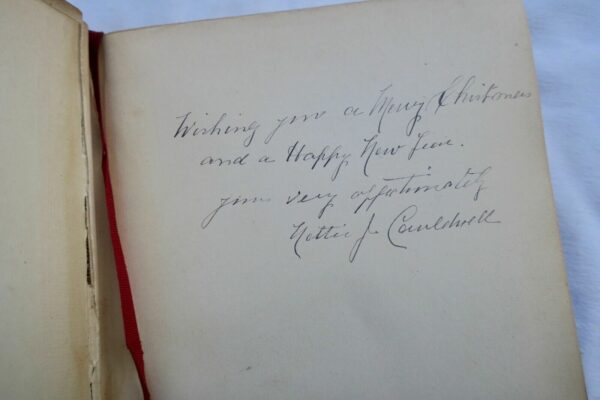 Wishing you a Merry Christmas
and a Happy New Year.
yours very affectionately
Nettie J. Cauldwell